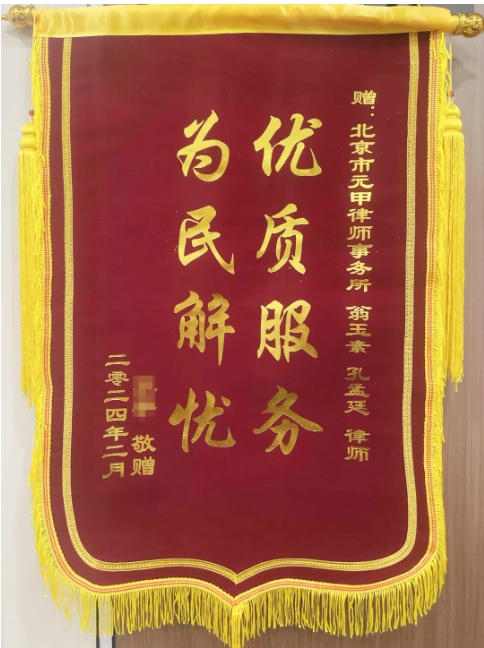 赠：北京市元甲律师事务所 翁玉素 孔孟廷 律师
优质服务
为民解忧
敬赠
二零二四年二月